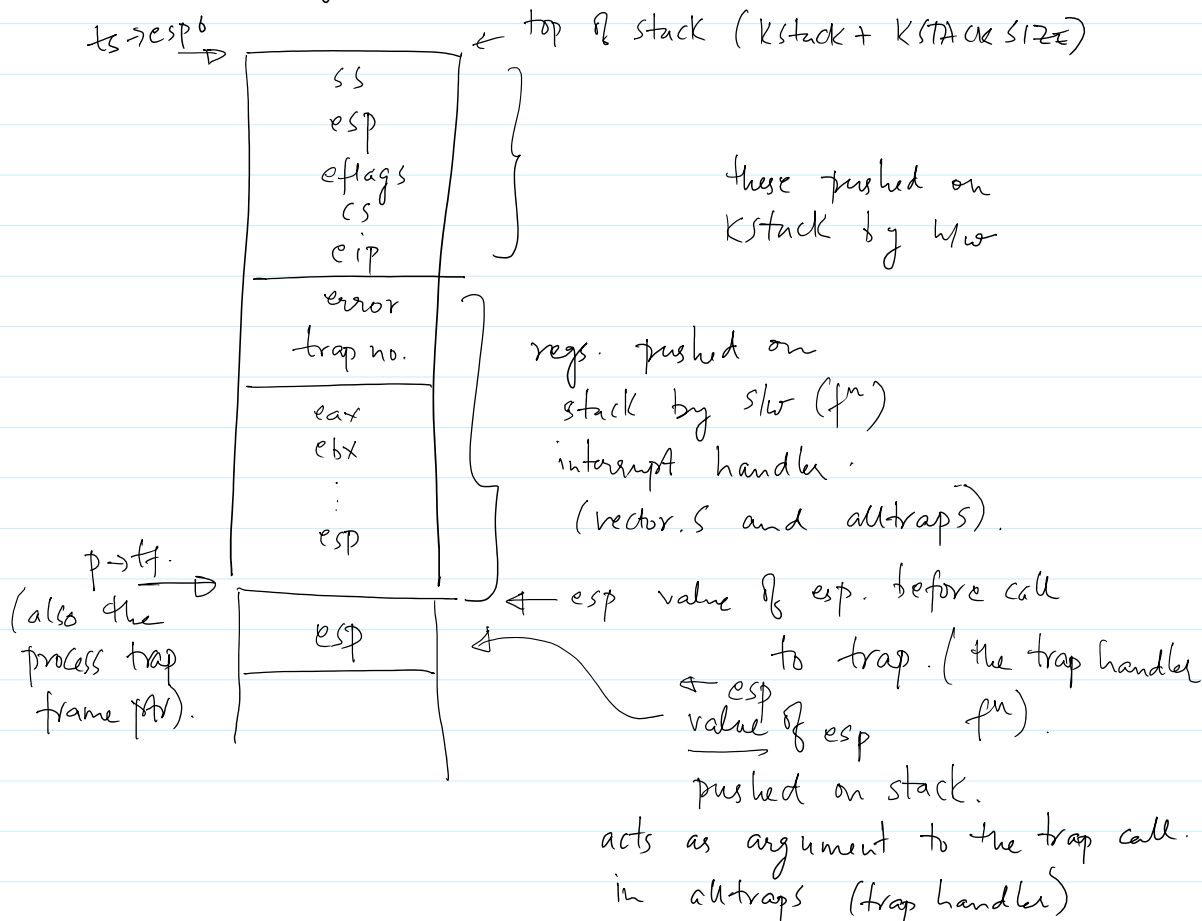 ts->esp0
← top of stack (Kstack + KSTACKSIZE)
ss
esp
eflags
cs
eip
these pushed on
Kstack by h/w
error
trap no.
eax
ebx
⋮
esp
regs. pushed on
stack by s/w (fⁿ)
interrupt handler.
(vector.S and alltraps).
p->tf.
(also the
process trap
frame ptr).
← esp value of esp. before call
to trap. (the trap handler
fⁿ).
esp
← esp
value of esp
pushed on stack.
acts as argument to the trap call.
in alltraps (trap handler)